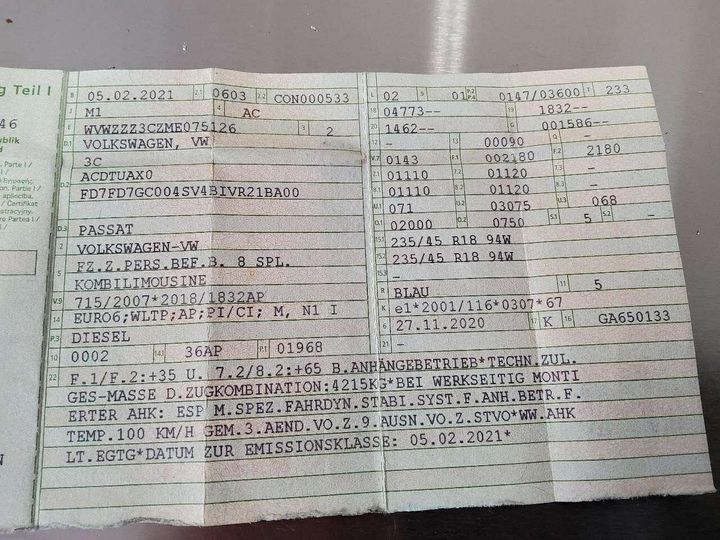 g Teil I
46
publik
B 05.02.2021 2.1 0603 2.2 CON000533
J M1 4 AC
E WVWZZZ3CZME075126 3 2
D.1 VOLKSWAGEN, VW
3C
D.2 ACDTUAX0
FD7FD7GC004SV4BIVR21BA00
D.3 PASSAT
2 VOLKSWAGEN-VW
5 FZ.Z.PERS.BEF.B. 8 SPL.
KOMBILIMOUSINE
V.9 715/2007*2018/1832AP
14 EURO6;WLTP;AP;PI/CI; M, N1 I
P.3 DIESEL
10 0002 14.1 36AP P.1 01968
L 02 9 01 P.2 P.4 0147/03600 T 233
18 04773-- 19 1832--
20 1462-- G 001586--
12 - 13 00090 Q -
V.7 0143 F.1 002180 F.2 2180
7.1 01110 7.2 01120 7.3 -
8.1 01110 8.2 01120 8.3 -
U.1 071 U.2 03075 U.3 068
O.1 02000 O.2 0750 S.1 5 S.2 -
15.1 235/45 R18 94W
15.2 235/45 R18 94W
15.3 -
R BLAU 11 5
K e1*2001/116*0307*67
6 27.11.2020 17 K 16 GA650133
22 F.1/F.2:+35 U. 7.2/8.2:+65 B.ANHÄNGEBETRIEB*TECHN.ZUL.
GES-MASSE D.ZUGKOMBINATION:4215KG*BEI WERKSEITIG MONTI
ERTER AHK: ESP M.SPEZ.FAHRDYN.STABI.SYST.F.ANH.BETR.F.
TEMP.100 KM/H GEM.3.AEND.VO.Z.9.AUSN.VO.Z.STVO*WW.AHK
LT.EGTG*DATUM ZUR EMISSIONSKLASSE: 05.02.2021*
N